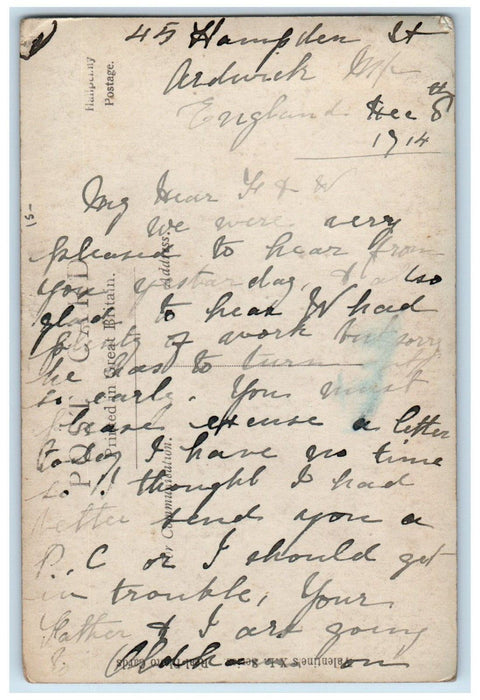 45 Hampden St
Ardwick M/c
England Dec 8th
1914
My Dear F & W
We were very
pleased to hear from
you yestarday, & also
glad to hear W had
plenty of work but sorry
he has to turn
so early. You must
please excuse a letter
today I have no time
so !! thought I had
better send you a
P.C or I should get
in trouble, Your
Father & I are going
to Oldham on
POST CARD
Printed in Great Britain.
Halfpenny
Postage.
Address.
For Communication.
15-
Valentine's X.L. Series Real Photo Cards